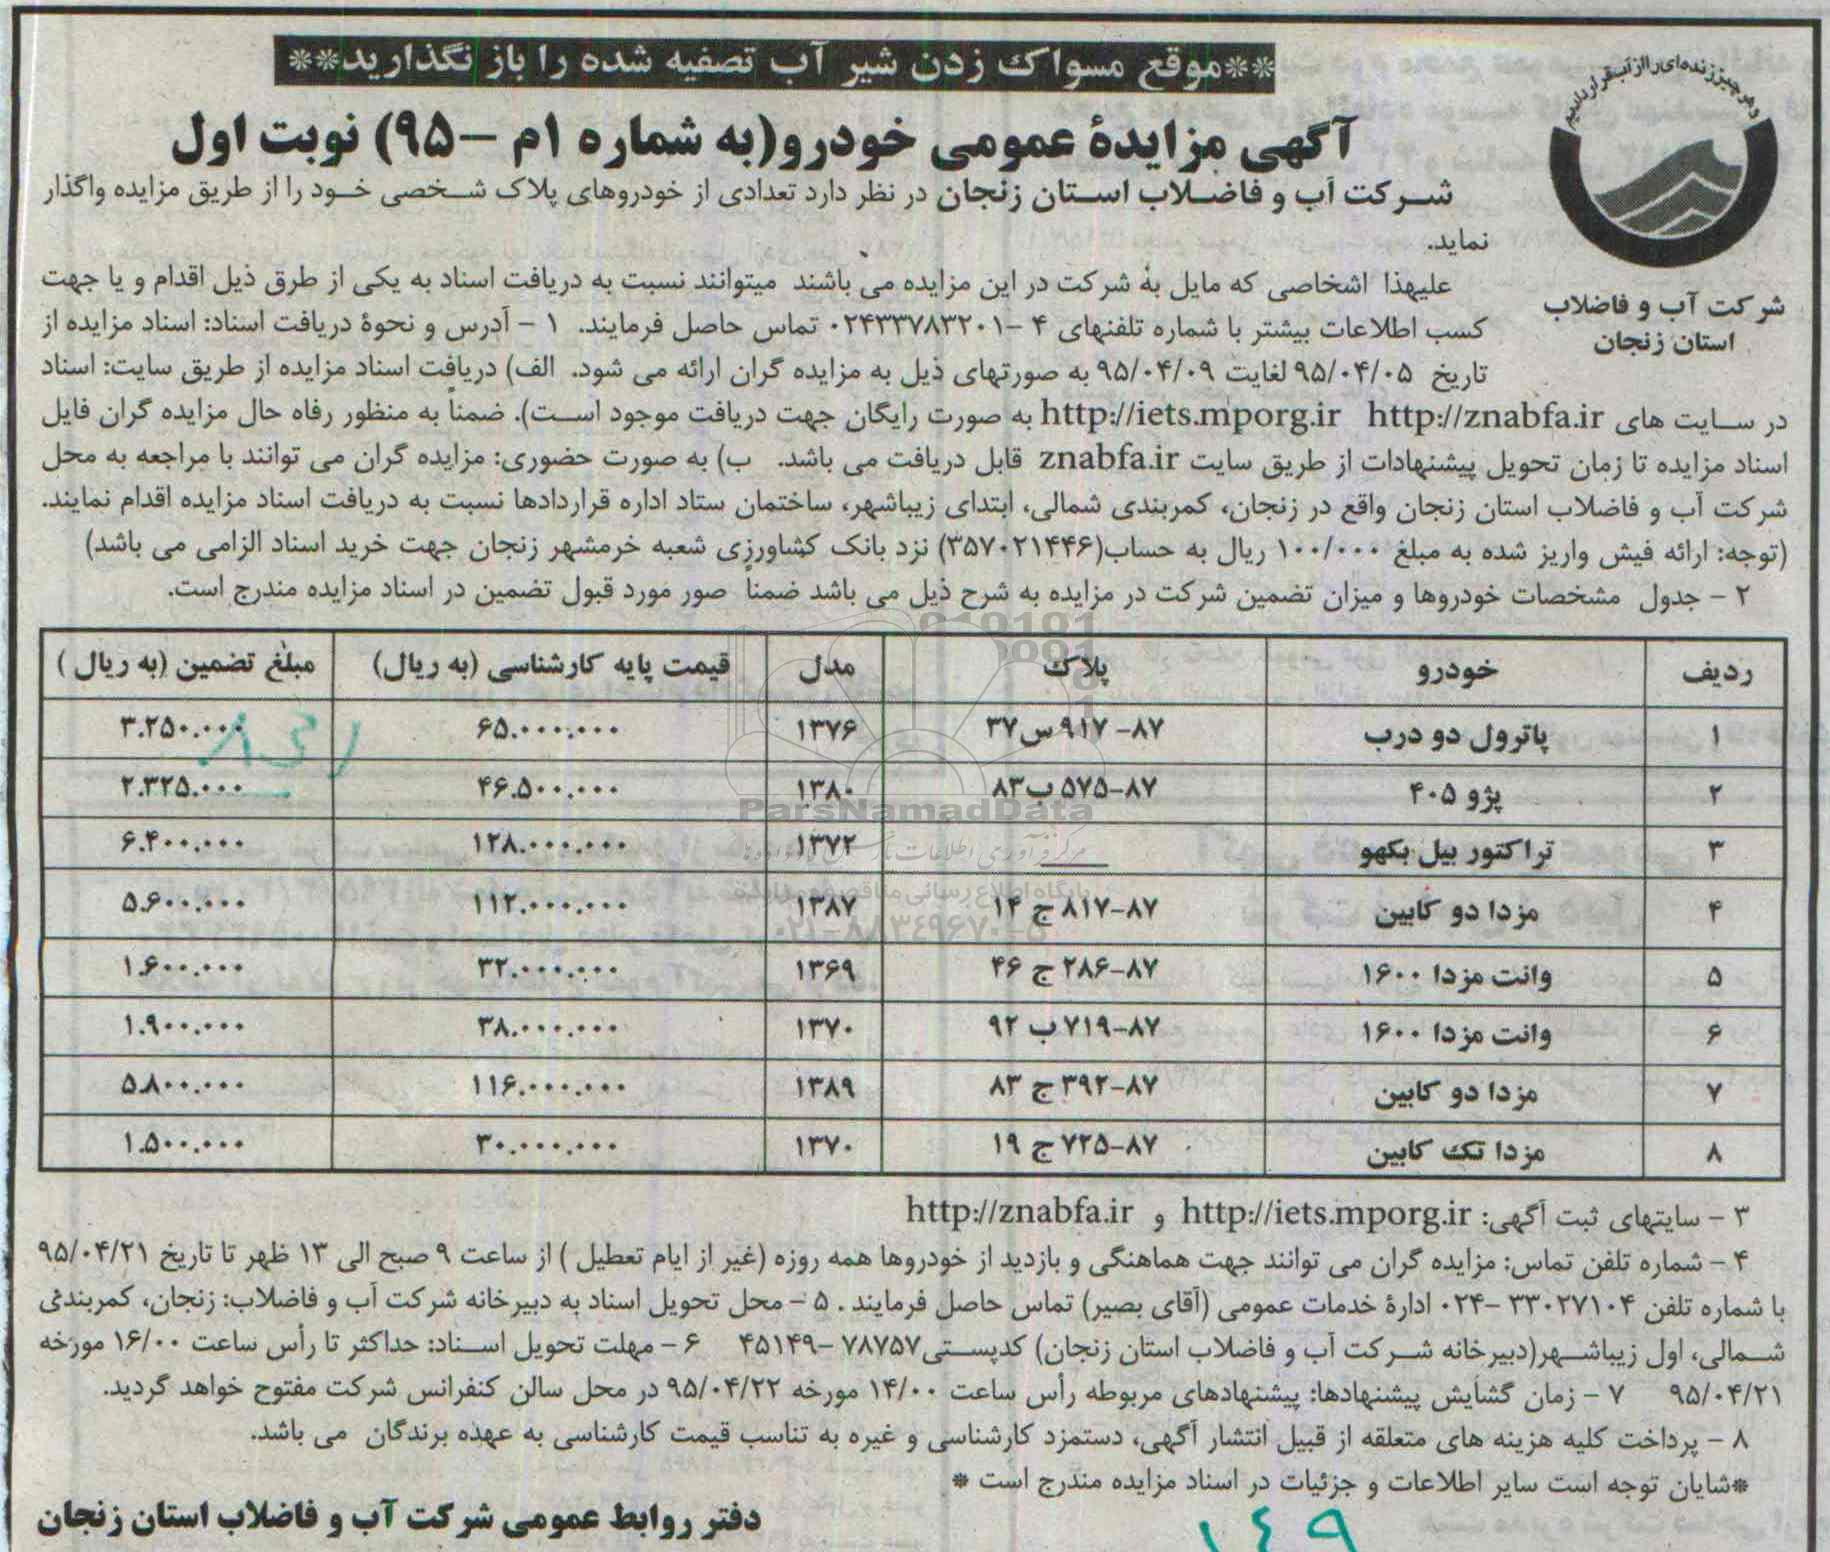 **موقع مسواک زدن شیر آب تصفیه شده را باز نگذارید**
وهر چیز زنده‌ای را از آب قرار دادیم
آگهی مزایدهٔ عمومی خودرو(به شماره ۱م -۹۵) نوبت اول
شرکت آب و فاضلاب
استان زنجان
شرکت آب و فاضلاب استان زنجان در نظر دارد تعدادی از خودروهای پلاک شخصی خود را از طریق مزایده واگذار
نماید.
علیهذا اشخاصی که مایل به شرکت در این مزایده می باشند میتوانند نسبت به دریافت اسناد به یکی از طرق ذیل اقدام و یا جهت
کسب اطلاعات بیشتر با شماره تلفنهای ۴ -۰۲۴۳۳۷۸۳۲۰۱ تماس حاصل فرمایند. ۱ - آدرس و نحوهٔ دریافت اسناد: اسناد مزایده از
تاریخ ۹۵/۰۴/۰۵ لغایت ۹۵/۰۴/۰۹ به صورتهای ذیل به مزایده گران ارائه می شود. الف) دریافت اسناد مزایده از طریق سایت: اسناد
در سایت های http://iets.mporg.ir http://znabfa.ir به صورت رایگان جهت دریافت موجود است). ضمناً به منظور رفاه حال مزایده گران فایل
اسناد مزایده تا زمان تحویل پیشنهادات از طریق سایت znabfa.ir قابل دریافت می باشد. ب) به صورت حضوری: مزایده گران می توانند با مراجعه به محل
شرکت آب و فاضلاب استان زنجان واقع در زنجان، کمربندی شمالی، ابتدای زیباشهر، ساختمان ستاد اداره قراردادها نسبت به دریافت اسناد مزایده اقدام نمایند.
(توجه: ارائه فیش واریز شده به مبلغ ۱۰۰/۰۰۰ ریال به حساب(۳۵۷۰۲۱۴۴۶) نزد بانک کشاورزی شعبه خرمشهر زنجان جهت خرید اسناد الزامی می باشد)
۲ - جدول مشخصات خودروها و میزان تضمین شرکت در مزایده به شرح ذیل می باشد ضمناً صور مورد قبول تضمین در اسناد مزایده مندرج است.
ردیف خودرو پلاک مدل قیمت پایه کارشناسی (به ریال) مبلغ تضمین (به ریال )
۱ پاترول دو درب ۸۷- ۹۱۷س۳۷ ۱۳۷۶ ۶۵.۰۰۰.۰۰۰ ۳.۲۵۰.۰۰۰
۲ پژو ۴۰۵ ۸۷-۵۷۵ب۸۳ ۱۳۸۰ ۴۶.۵۰۰.۰۰۰ ۲.۳۲۵.۰۰۰
۳ تراکتور بیل بکهو ــــــ ۱۳۷۲ ۱۲۸.۰۰۰.۰۰۰ ۶.۴۰۰.۰۰۰
۴ مزدا دو کابین ۸۷-۸۱۷ ج ۱۴ ۱۳۸۷ ۱۱۲.۰۰۰.۰۰۰ ۵.۶۰۰.۰۰۰
۵ وانت مزدا ۱۶۰۰ ۸۷-۲۸۶ ج ۴۶ ۱۳۶۹ ۳۲.۰۰۰.۰۰۰ ۱.۶۰۰.۰۰۰
۶ وانت مزدا ۱۶۰۰ ۸۷-۷۱۹ ب ۹۲ ۱۳۷۰ ۳۸.۰۰۰.۰۰۰ ۱.۹۰۰.۰۰۰
۷ مزدا دو کابین ۸۷-۳۹۲ ج ۸۳ ۱۳۸۹ ۱۱۶.۰۰۰.۰۰۰ ۵.۸۰۰.۰۰۰
۸ مزدا تک کابین ۸۷-۷۲۵ ج ۱۹ ۱۳۷۰ ۳۰.۰۰۰.۰۰۰ ۱.۵۰۰.۰۰۰
ParsNamadData
پایگاه اطلاع رسانی مناقصه و مزایده
۰۲۱-۸۸۳۴۹۶۷۰-۵
۳ - سایتهای ثبت آگهی: http://iets.mporg.ir و http://znabfa.ir
۴ - شماره تلفن تماس: مزایده گران می توانند جهت هماهنگی و بازدید از خودروها همه روزه (غیر از ایام تعطیل ) از ساعت ۹ صبح الی ۱۳ ظهر تا تاریخ ۹۵/۰۴/۲۱
با شماره تلفن ۳۳۰۲۷۱۰۴ -۰۲۴ ادارهٔ خدمات عمومی (آقای بصیر) تماس حاصل فرمایند . ۵ - محل تحویل اسناد به دبیرخانه شرکت آب و فاضلاب: زنجان، کمربندی
شمالی، اول زیباشهر(دبیرخانه شرکت آب و فاضلاب استان زنجان) کدپستی۷۸۷۵۷ -۴۵۱۴۹ ۶ - مهلت تحویل اسناد: حداکثر تا رأس ساعت ۱۶/۰۰ مورخه
۹۵/۰۴/۲۱ ۷ - زمان گشایش پیشنهادها: پیشنهادهای مربوطه رأس ساعت ۱۴/۰۰ مورخه ۹۵/۰۴/۲۲ در محل سالن کنفرانس شرکت مفتوح خواهد گردید.
۸ - پرداخت کلیه هزینه های متعلقه از قبیل انتشار آگهی، دستمزد کارشناسی و غیره به تناسب قیمت کارشناسی به عهده برندگان می باشد.
*شایان توجه است سایر اطلاعات و جزئیات در اسناد مزایده مندرج است *
دفتر روابط عمومی شرکت آب و فاضلاب استان زنجان
۱۴۹